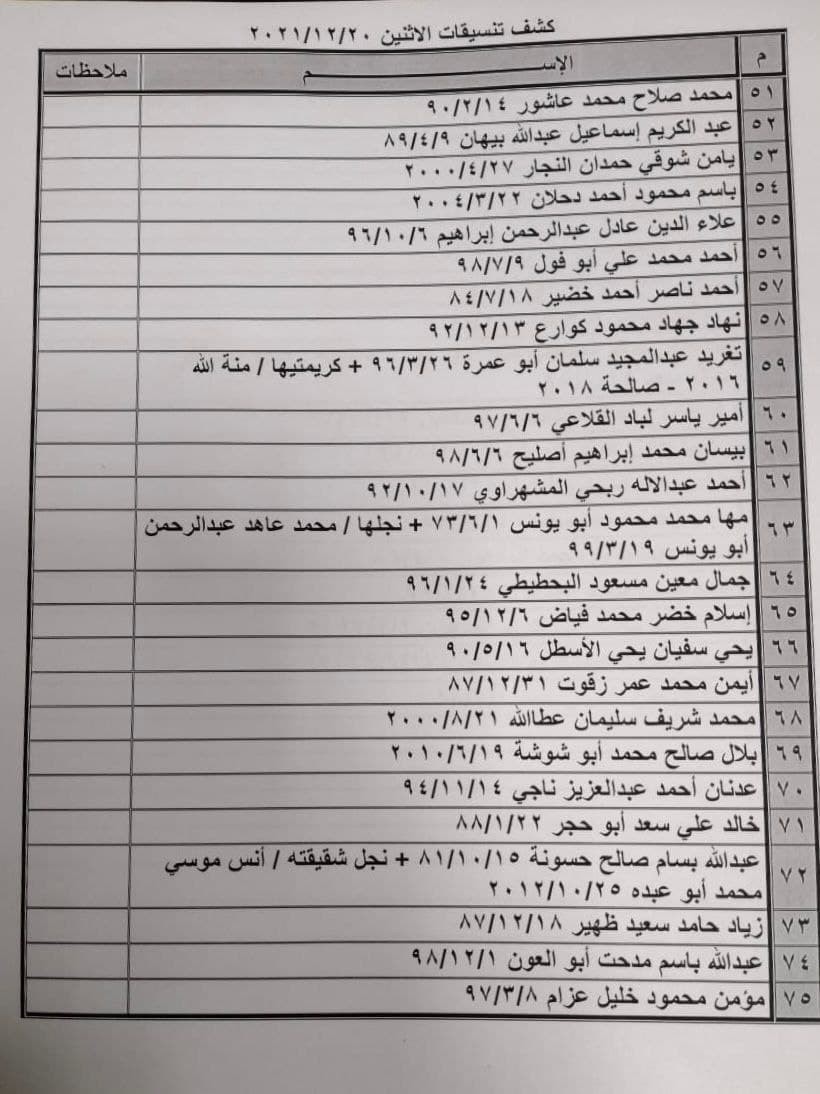 كشف تنسيقات الاثنين ٢٠٢١/١٢/٢٠
م الإســـــــم ملاحظات
٥١ محمد صلاح محمد عاشور ٩٠/٢/١٤
٥٢ عبد الكريم إسماعيل عبدالله بيهان ٨٩/٤/٩
٥٣ يامن شوقي حمدان النجار ٢٠٠٠/٤/٢٧
٥٤ باسم محمود أحمد دحلان ٢٠٠٤/٣/٢٢
٥٥ علاء الدين عادل عبدالرحمن إبراهيم ٩٦/١٠/٦
٥٦ أحمد محمد علي أبو فول ٩٨/٧/٩
٥٧ أحمد ناصر أحمد خضير ٨٤/٧/١٨
٥٨ نهاد جهاد محمود كوارع ٩٢/١٢/١٣
٥٩ تغريد عبدالمجيد سلمان أبو عمرة ٩٦/٣/٢٦ + كريمتيها / منة الله
٢٠١٦ - صالحة ٢٠١٨
٦٠ أمير ياسر لباد القلاعي ٩٧/٦/٦
٦١ بيسان محمد إبراهيم أصليح ٩٨/٦/٦
٦٢ أحمد عبدالاله ربحي المشهراوي ٩٢/١٠/١٧
٦٣ مها محمد محمود أبو يونس ٧٣/٦/١ + نجلها / محمد عاهد عبدالرحمن
أبو يونس ٩٩/٣/١٩
٦٤ جمال معين مسعود البحطيطي ٩٦/١/٢٤
٦٥ إسلام خضر محمد فياض ٩٥/١٢/٦
٦٦ يحي سفيان يحي الأسطل ٩٠/٥/١٦
٦٧ أيمن محمد عمر زقوت ٨٧/١٢/٣١
٦٨ محمد شريف سليمان عطاالله ٢٠٠٠/٨/٢١
٦٩ بلال صالح محمد أبو شوشة ٢٠١٠/٦/١٩
٧٠ عدنان أحمد عبدالعزيز ناجي ٩٤/١١/١٤
٧١ خالد علي سعد أبو حجر ٨٨/١/٢٢
٧٢ عبدالله بسام صالح حسونة ٨١/١٠/١٥ + نجل شقيقته / أنس موسي
محمد أبو عبده ٢٠١٢/١٠/٢٥
٧٣ زياد حامد سعيد ظهير ٨٧/١٢/١٨
٧٤ عبدالله باسم مدحت أبو العون ٩٨/١٢/١
٧٥ مؤمن محمود خليل عزام ٩٧/٣/٨